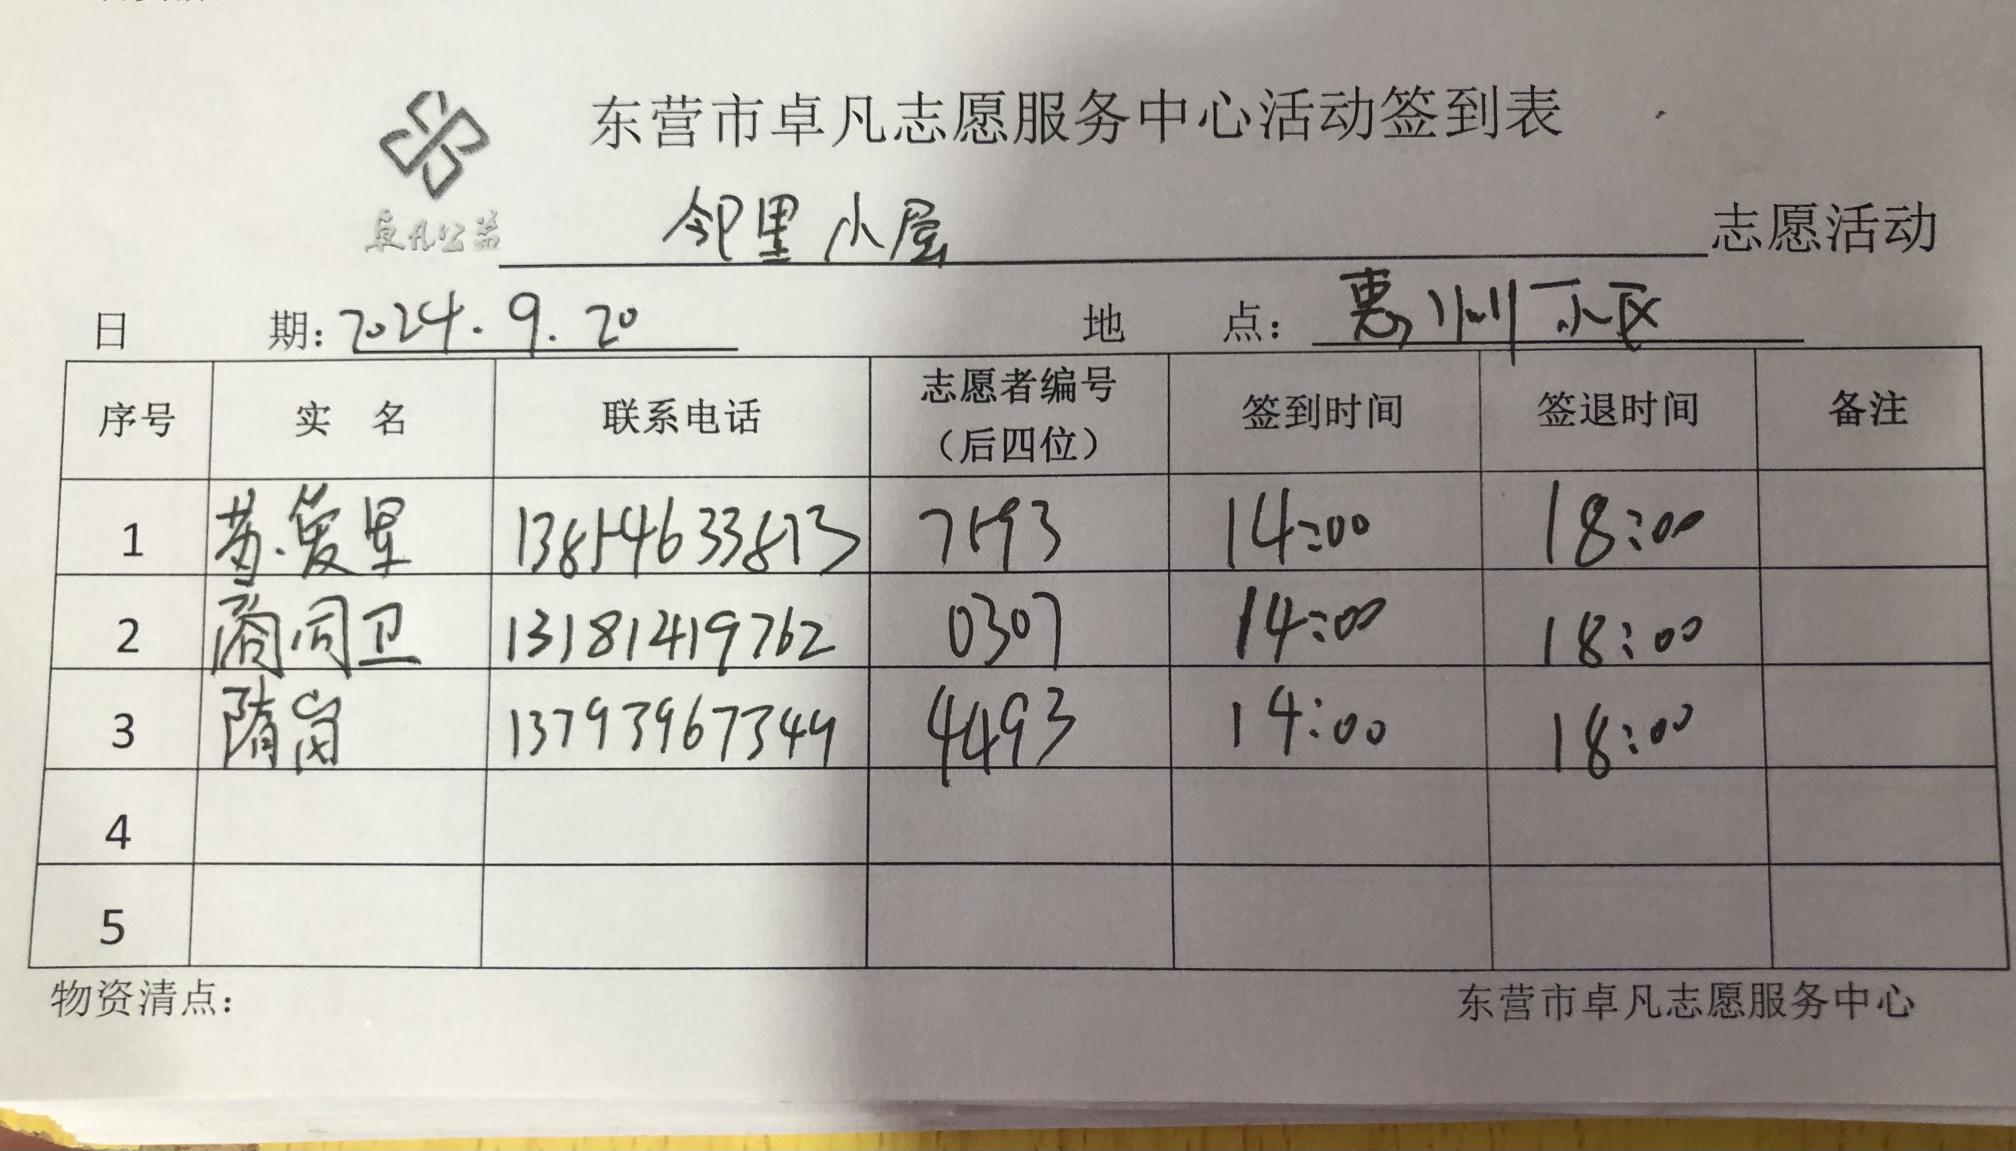 东营市卓凡志愿服务中心活动签到表
卓凡公益
邻里小屋 志愿活动
日 期：2024.9.20 地 点：惠州小区
序号 实 名 联系电话 志愿者编号（后四位） 签到时间 签退时间 备注
1 苏爱星 13854633873 7593 14:00 18:00
2 商同卫 13181419762 0307 14:00 18:00
3 隋岗 13793967349 4493 14:00 18:00
4
5
物资清点： 东营市卓凡志愿服务中心